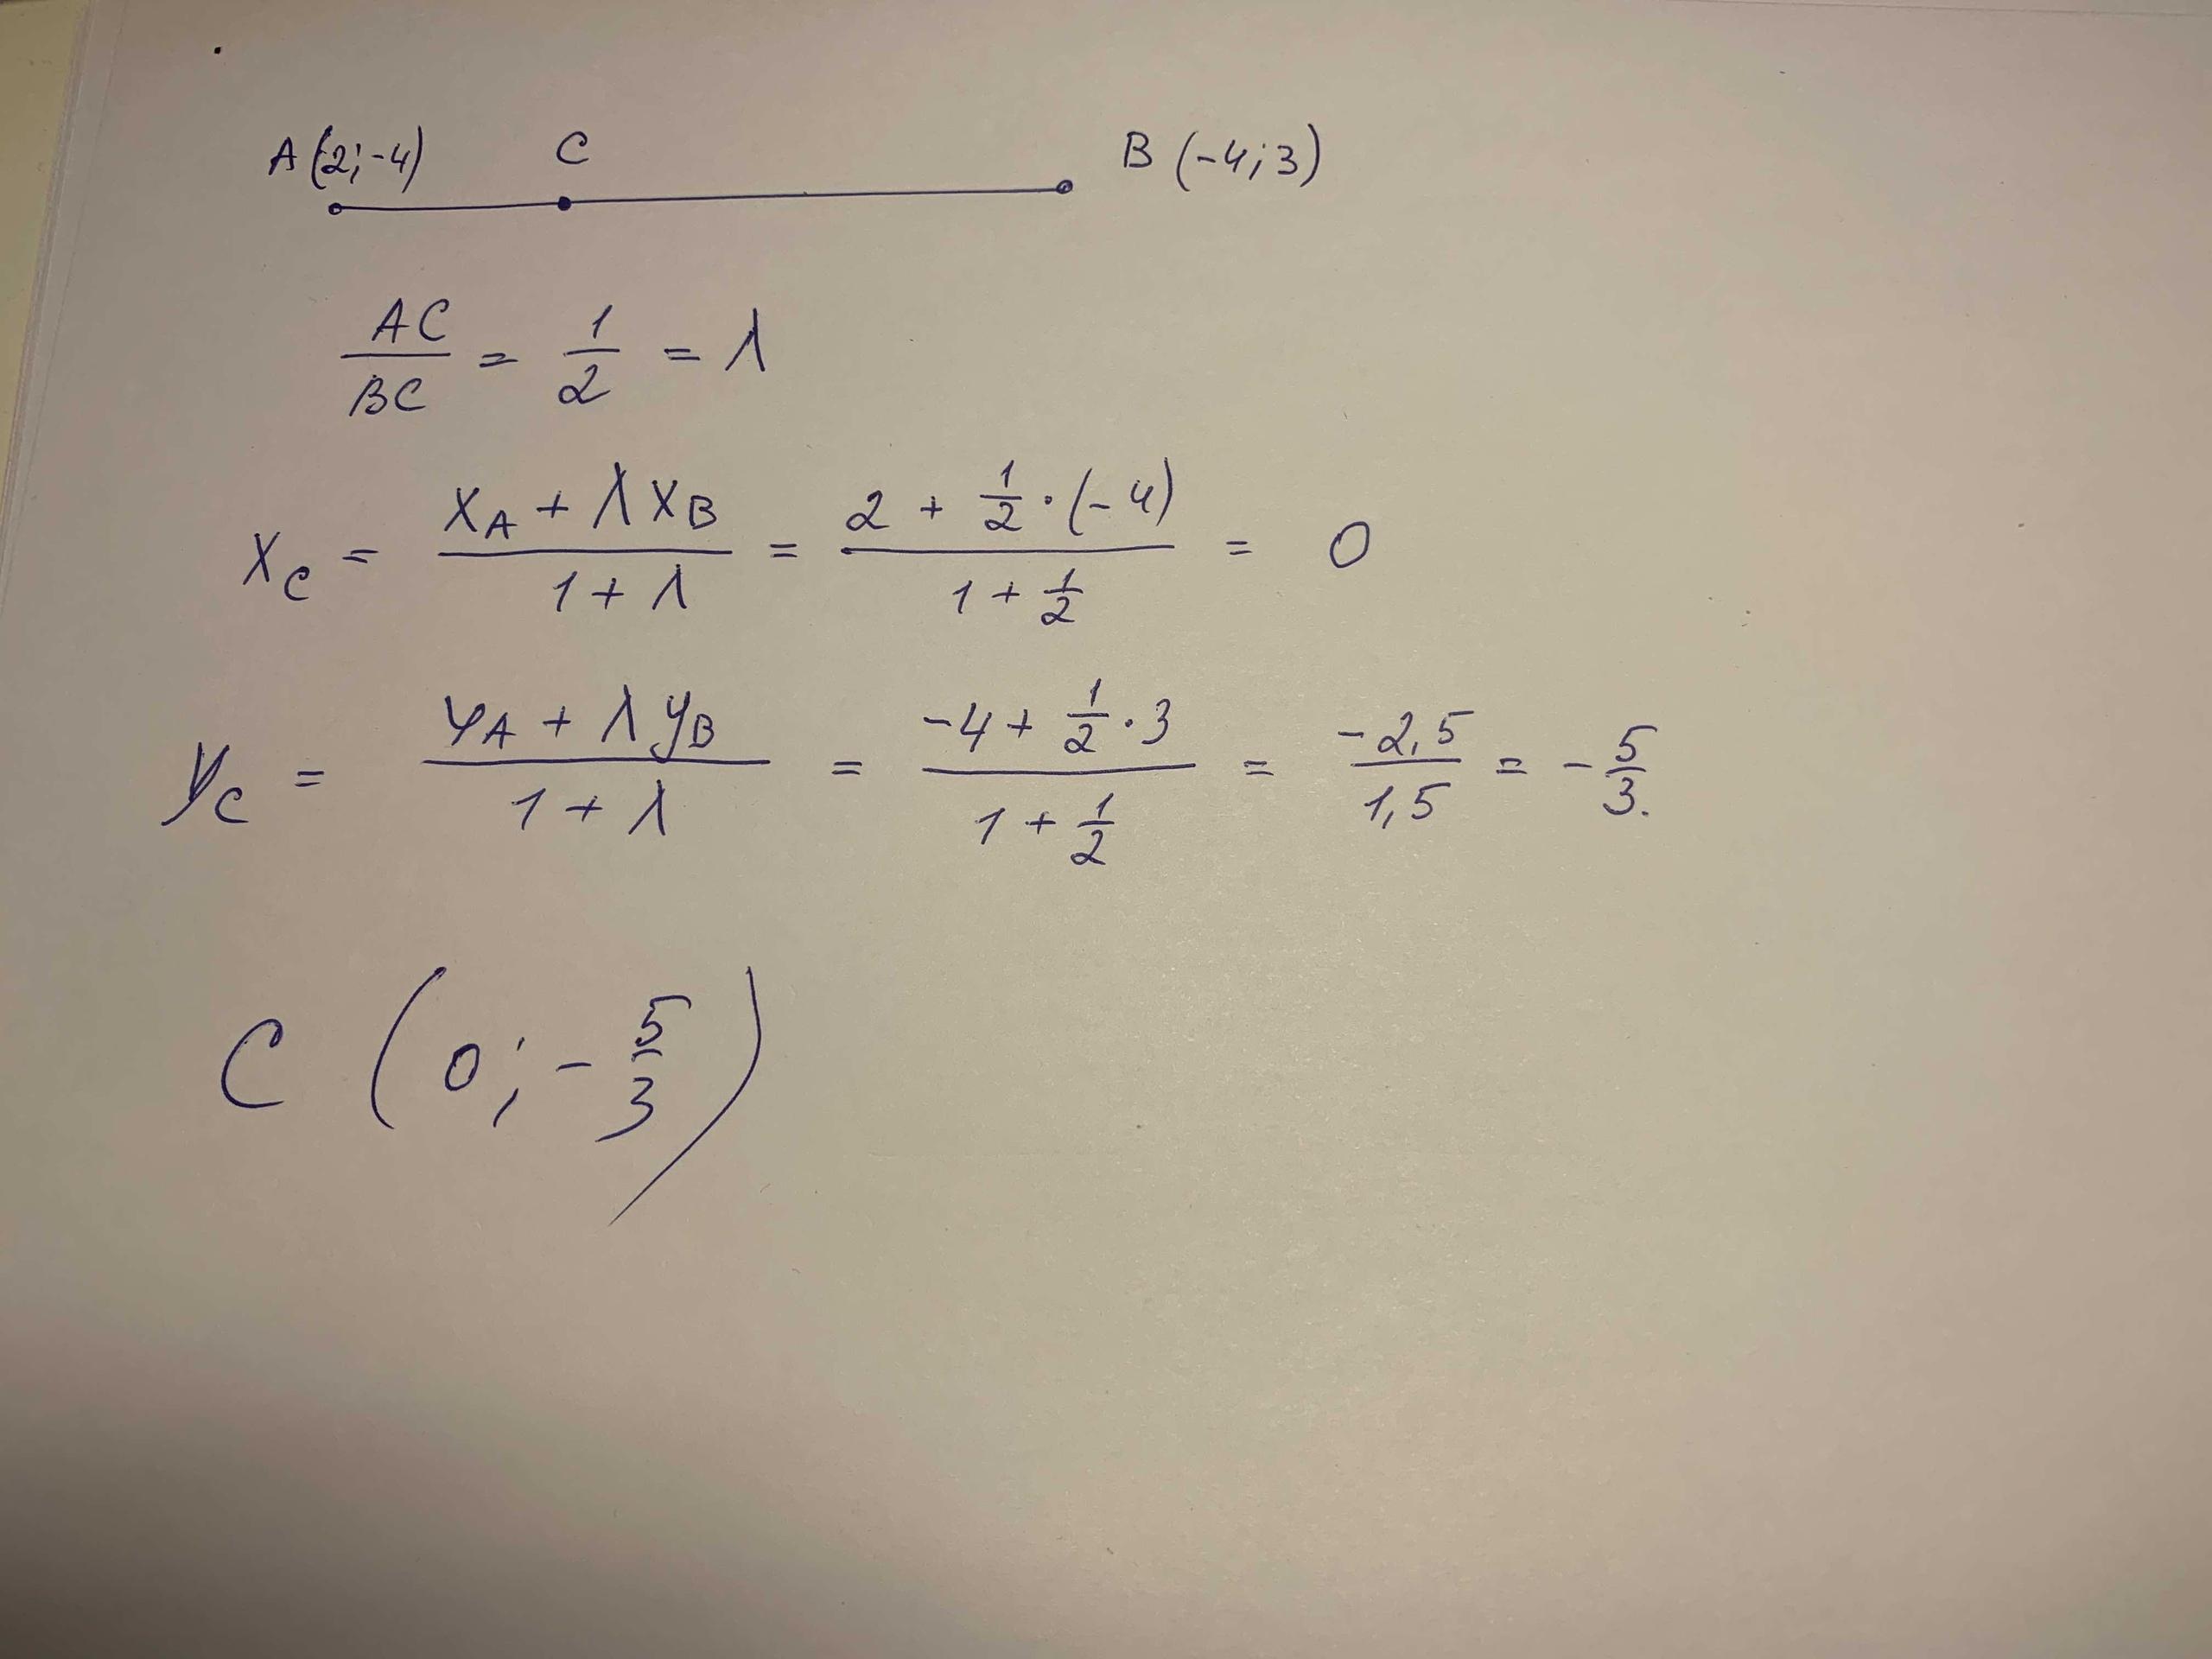 A(2;-4) C B (-4;3)
AC/BC = 1/2 = λ
x_C = (x_A + λ x_B)/(1 + λ) = (2 + 1/2 · (-4))/(1 + 1/2) = 0
y_C = (y_A + λ y_B)/(1 + λ) = (-4 + 1/2 · 3)/(1 + 1/2) = -2,5/1,5 = -5/3.
C (0; -5/3)